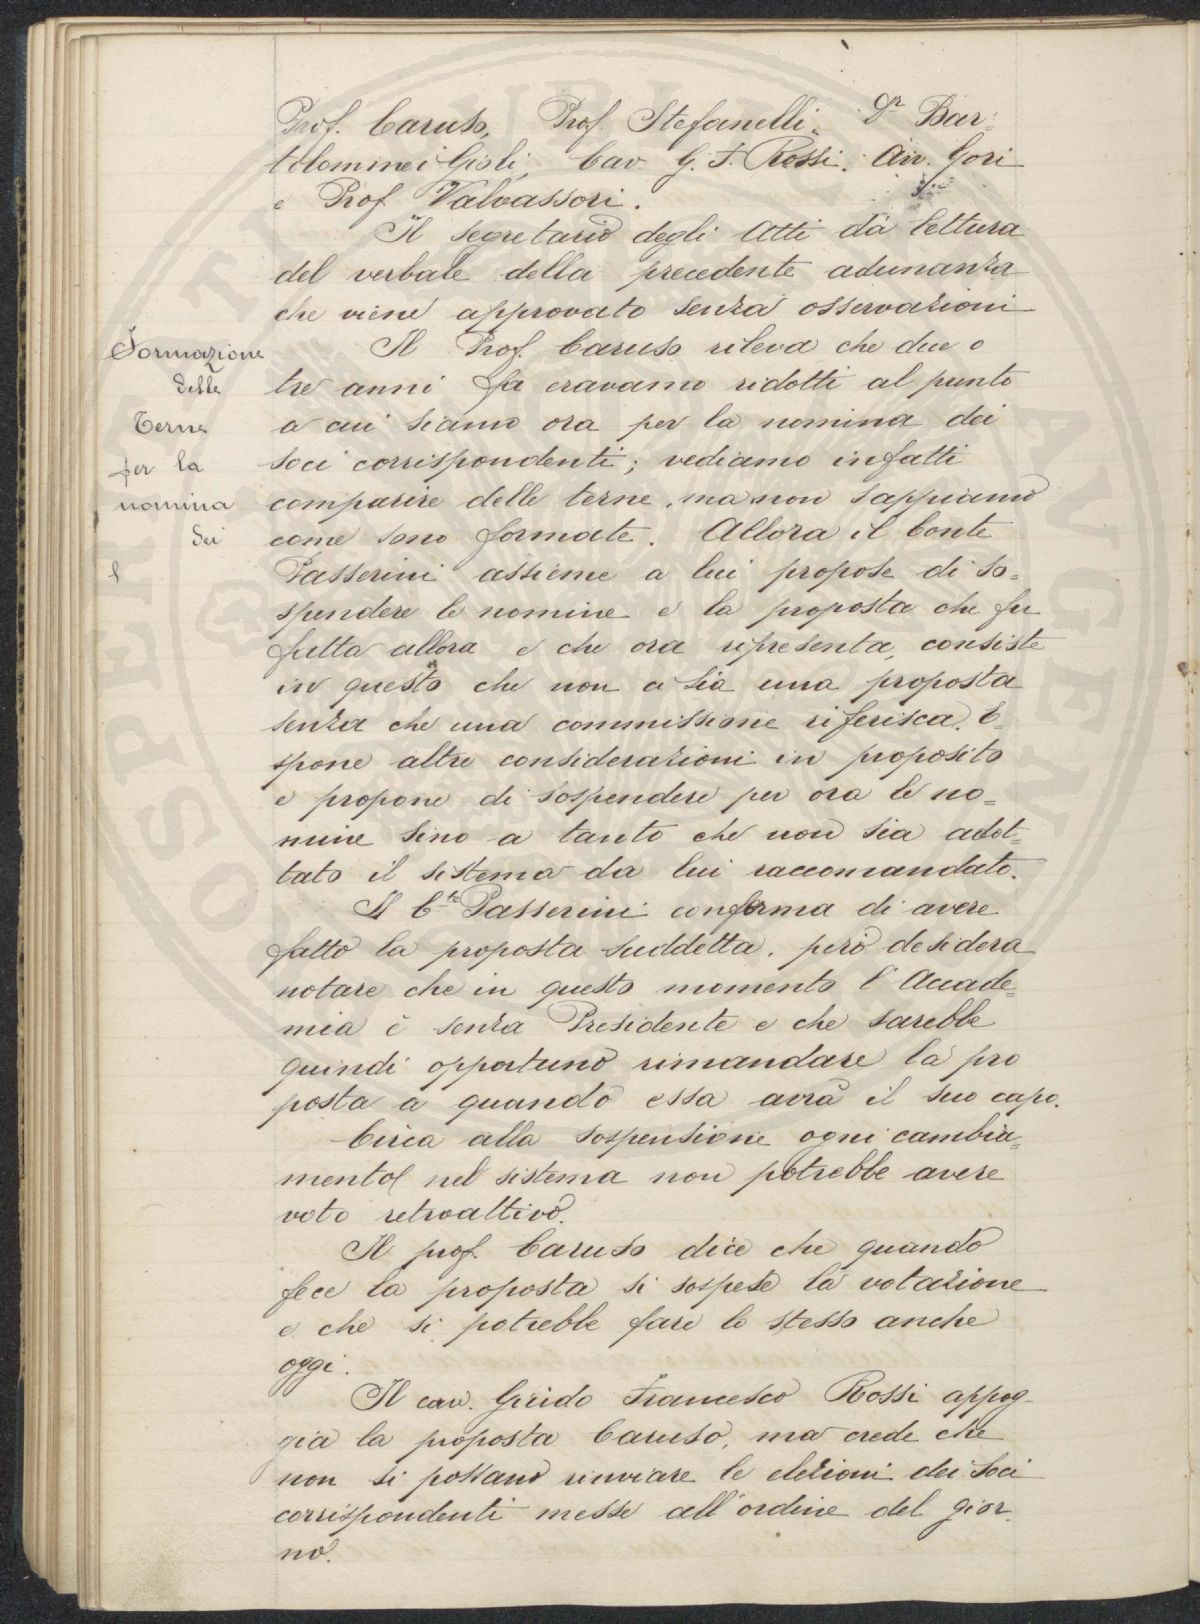 Prof. Caruso, Prof. Stefanelli, Dr. Bar=
tolommei Gioli, Cav. G. F. Rossi, Avv. Gori
e Prof. Valvassori.
Il Segretario degli Atti dà lettura
del verbale della precedente adunanza
che viene approvato senza osservazioni
Formazione
delle
Terne
per la
nomina
dei
Il Prof. Caruso rileva che due o
tre anni fa eravamo ridotti al punto
a cui siamo ora per la nomina dei
soci corrispondenti; vediamo infatti
comparire delle terne, ma non sappiamo
come sono formate. Allora il Conte
Passerini assieme a lui propose di so=
spendere le nomine e la proposta che fu
fatta allora e che ora ripresenta, consiste
in questo che non ci sia una proposta
senza che una commissione riferisca. E=
spone altre considerazioni in proposito
e propone di sospendere per ora le no=
mine sino a tanto che non sia adot=
tato il sistema da lui raccomandato.
Il Cte Passerini conferma di avere
fatto la proposta suddetta, però desidera
notare che in questo momento l'Accade=
mia è senza Presidente e che sarebbe
quindi opportuno rimandare la pro
posta a quando essa avrà il suo capo.
Circa alla sospensione ogni cambia=
mento nel sistema non potrebbe avere
voto retroattivo.
Il prof. Caruso dice che quando
fece la proposta si sospese la votazione
e che si potrebbe fare lo stesso anche
oggi.
Il cav. Guido Francesco Rossi appog-
gia la proposta Caruso, ma crede che
non si possano rinviare le elezioni dei Soci
corrispondenti messe all'ordine del gior
no.